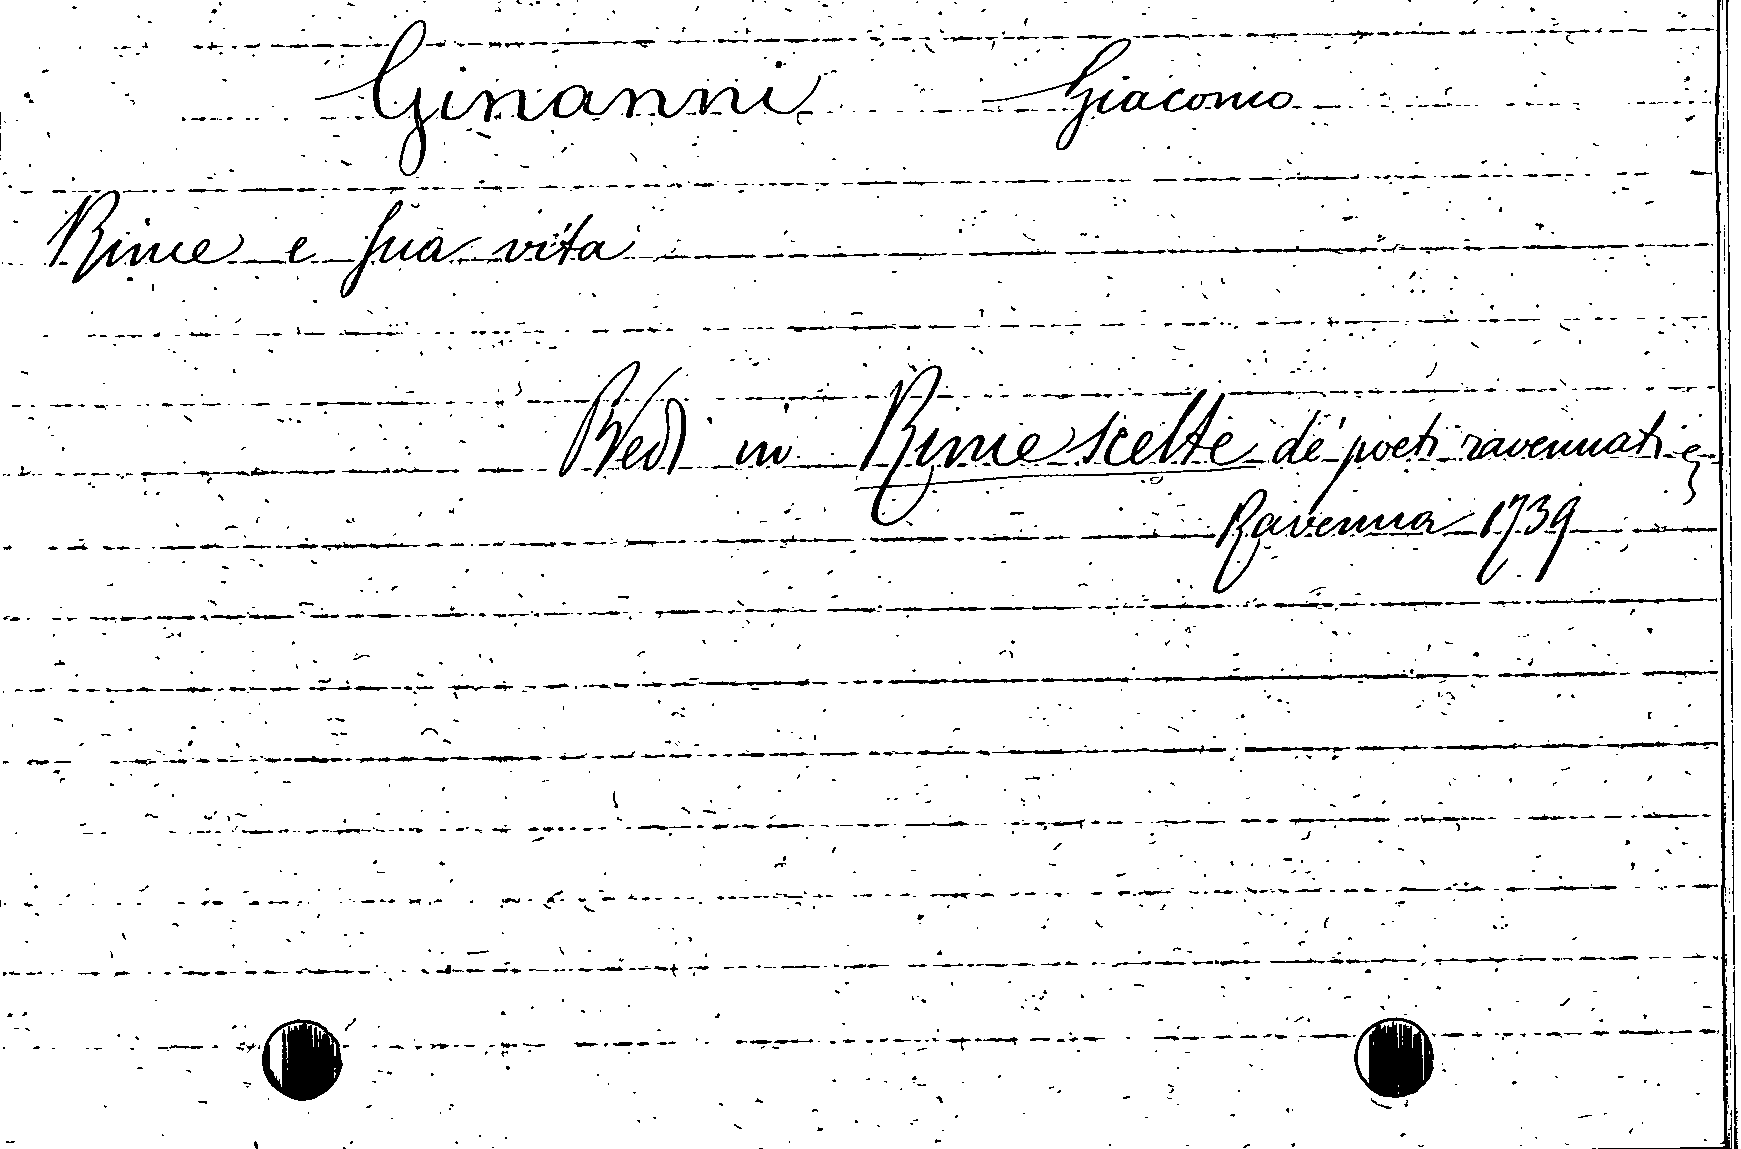 Ginanni Giacomo
Rime e sua vita
Vedi in Rime scelte de' poeti ravennati ec
Ravenna 1739